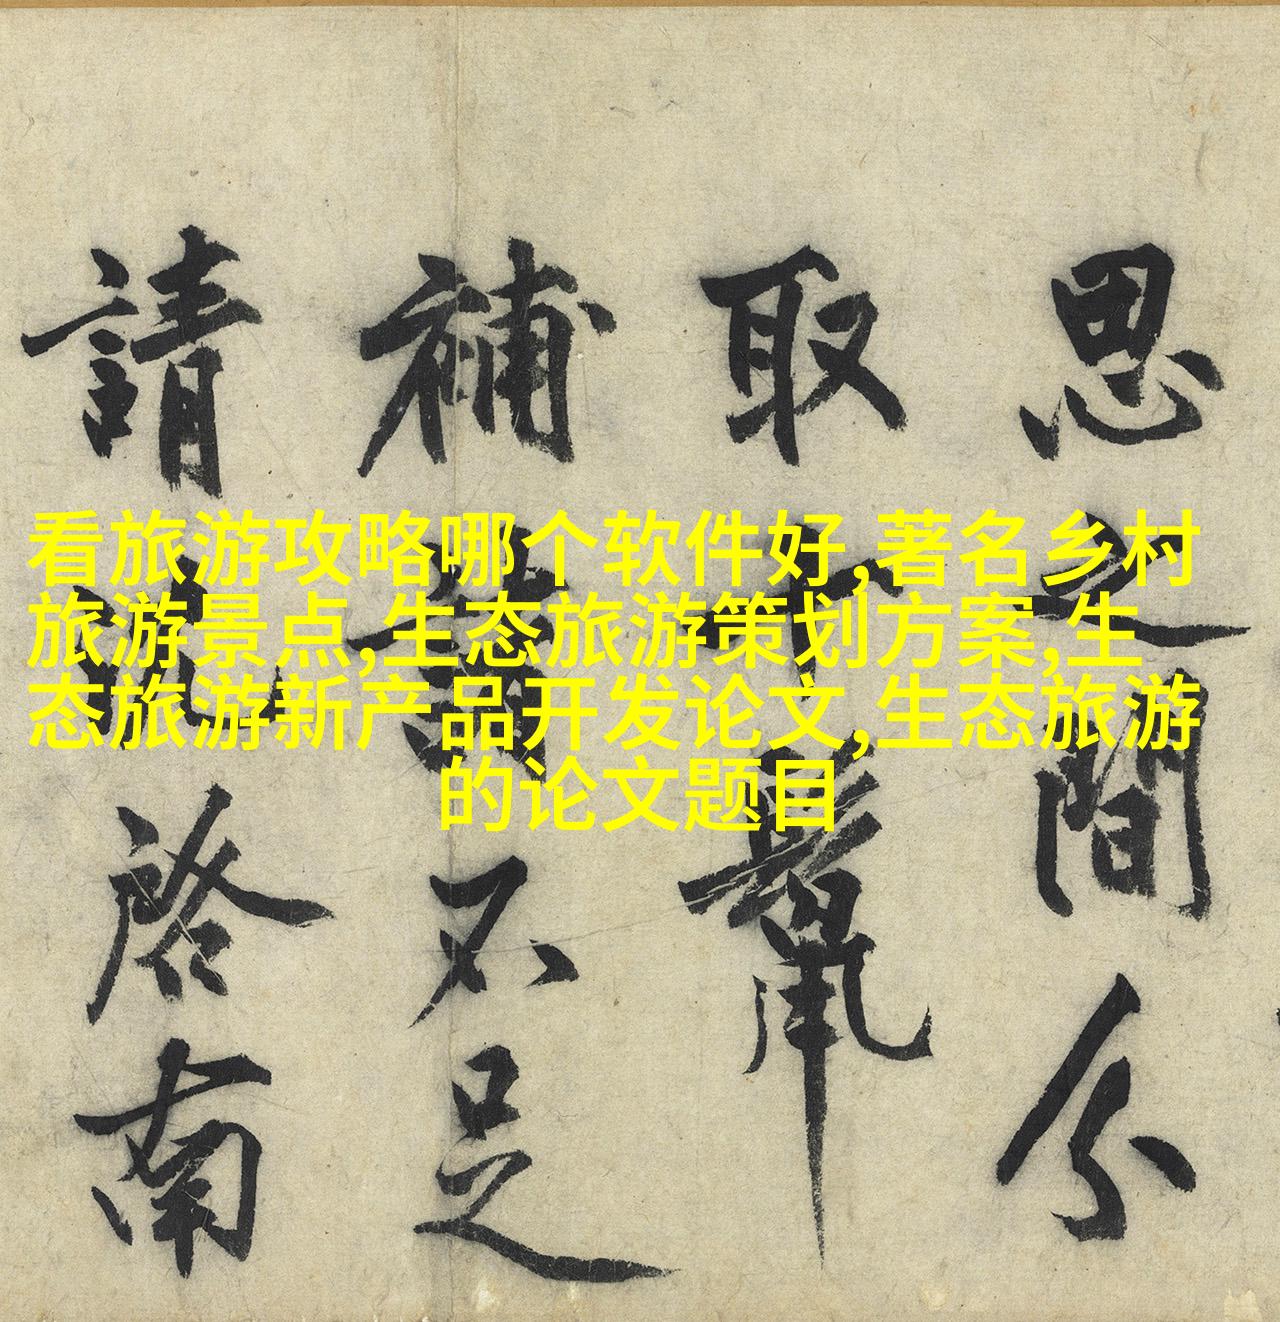 思之間分
取
補不足
請啓南
看旅游攻略哪个软件好,著名乡村
旅游景点,生态旅游策划方案,生
态旅游新产品开发论文,生态旅游
的论文题目